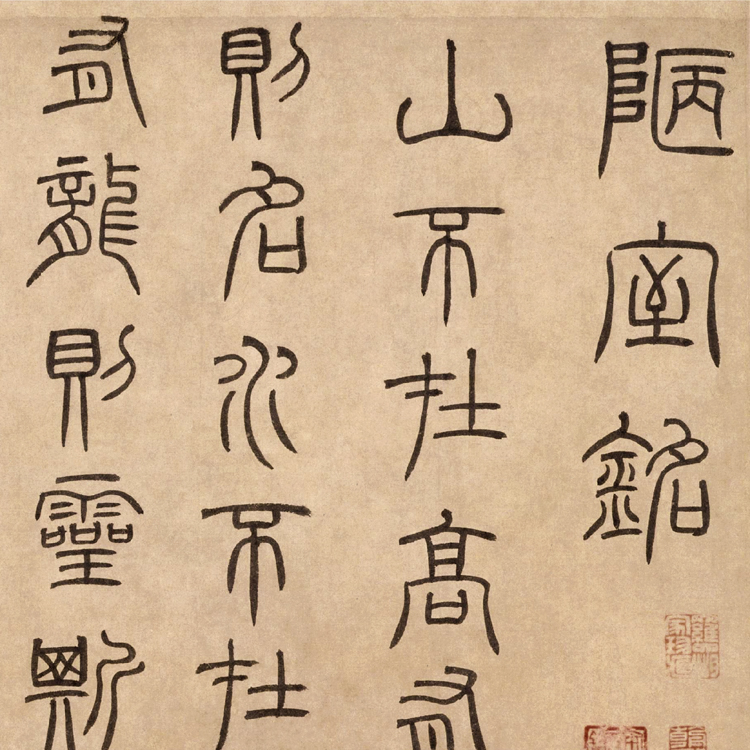 陋室銘
山不在高有
則名水不在
有龍則靈斯